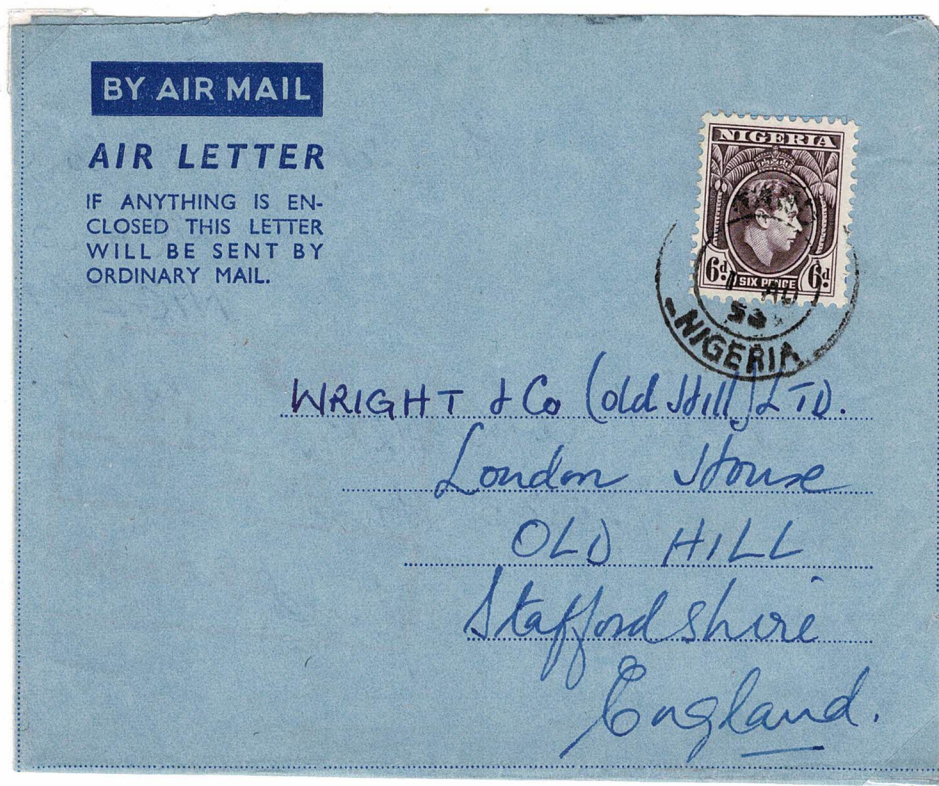 BY AIR MAIL
AIR LETTER
IF ANYTHING IS EN-
CLOSED THIS LETTER
WILL BE SENT BY
ORDINARY MAIL.
NIGERIA
6d SIX PENCE 6d
1 AU
NIGERIA
WRIGHT & Co (old Hill) LTD.
London House
OLD HILL
Staffordshire
England.